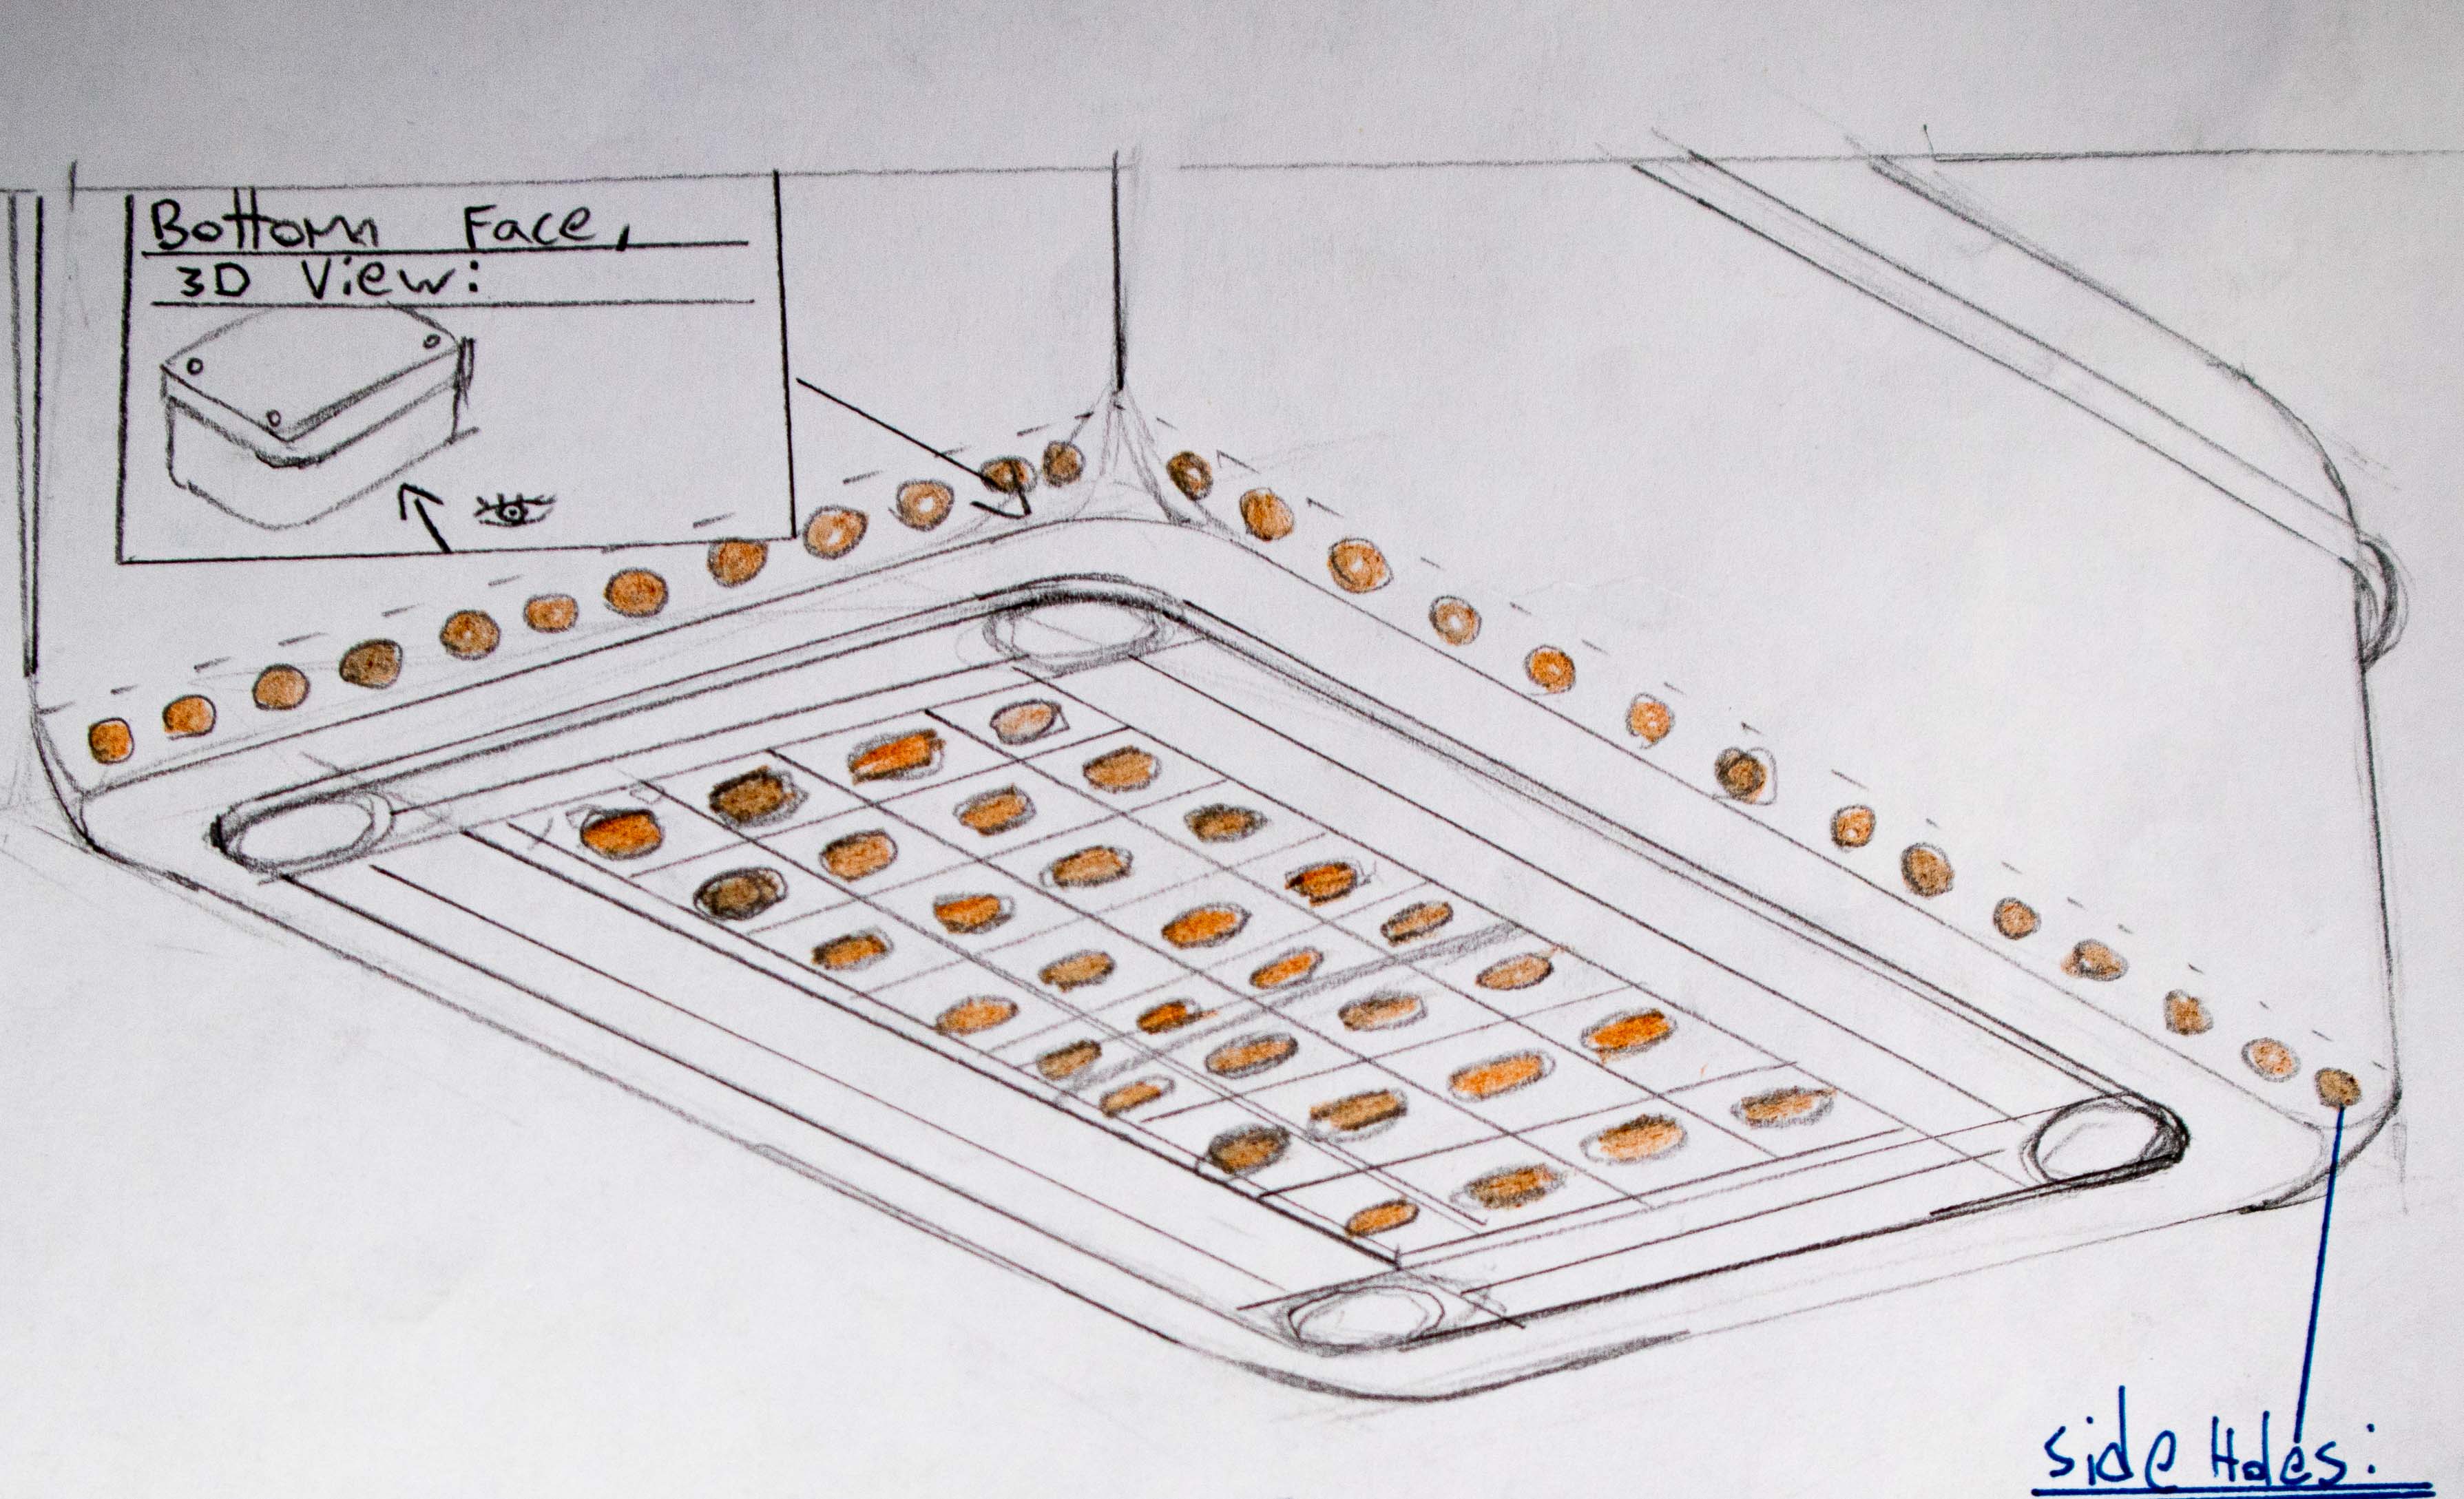 Bottom Face,
3D View:
Side Holes: